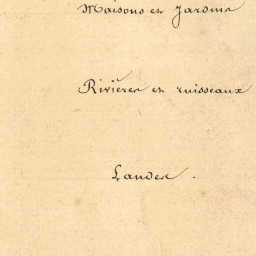 Maisons et Jardins
Rivières et ruisseaux
Landes.